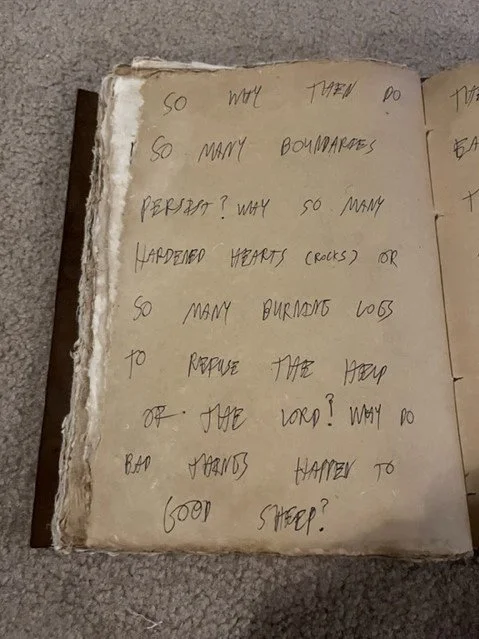 SO WHY THEN DO
SO MANY BOUNDARIES
PERSIST? WHY SO MANY
HARDENED HEARTS (ROCKS) OR
SO MANY BURNING LOGS
TO REFUSE THE HELP
OF THE LORD? WHY DO
BAD THINGS HAPPEN TO
GOOD SHEEP?
EA